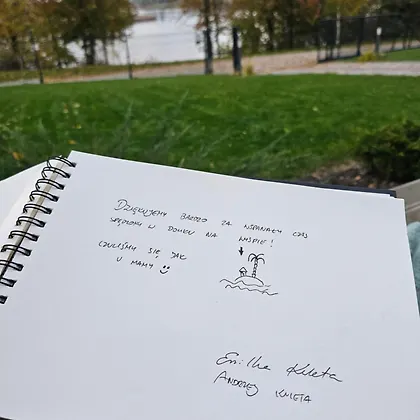 DZIĘKUJEMY BARDZO ZA WSPANIAŁY CZAS
SPĘDZONY W DOMKU NA WYSPIE!
CZULIŚMY SIĘ JAK
U MAMY :)
Emilka Kmieta
ANDRZEJ KMIETA